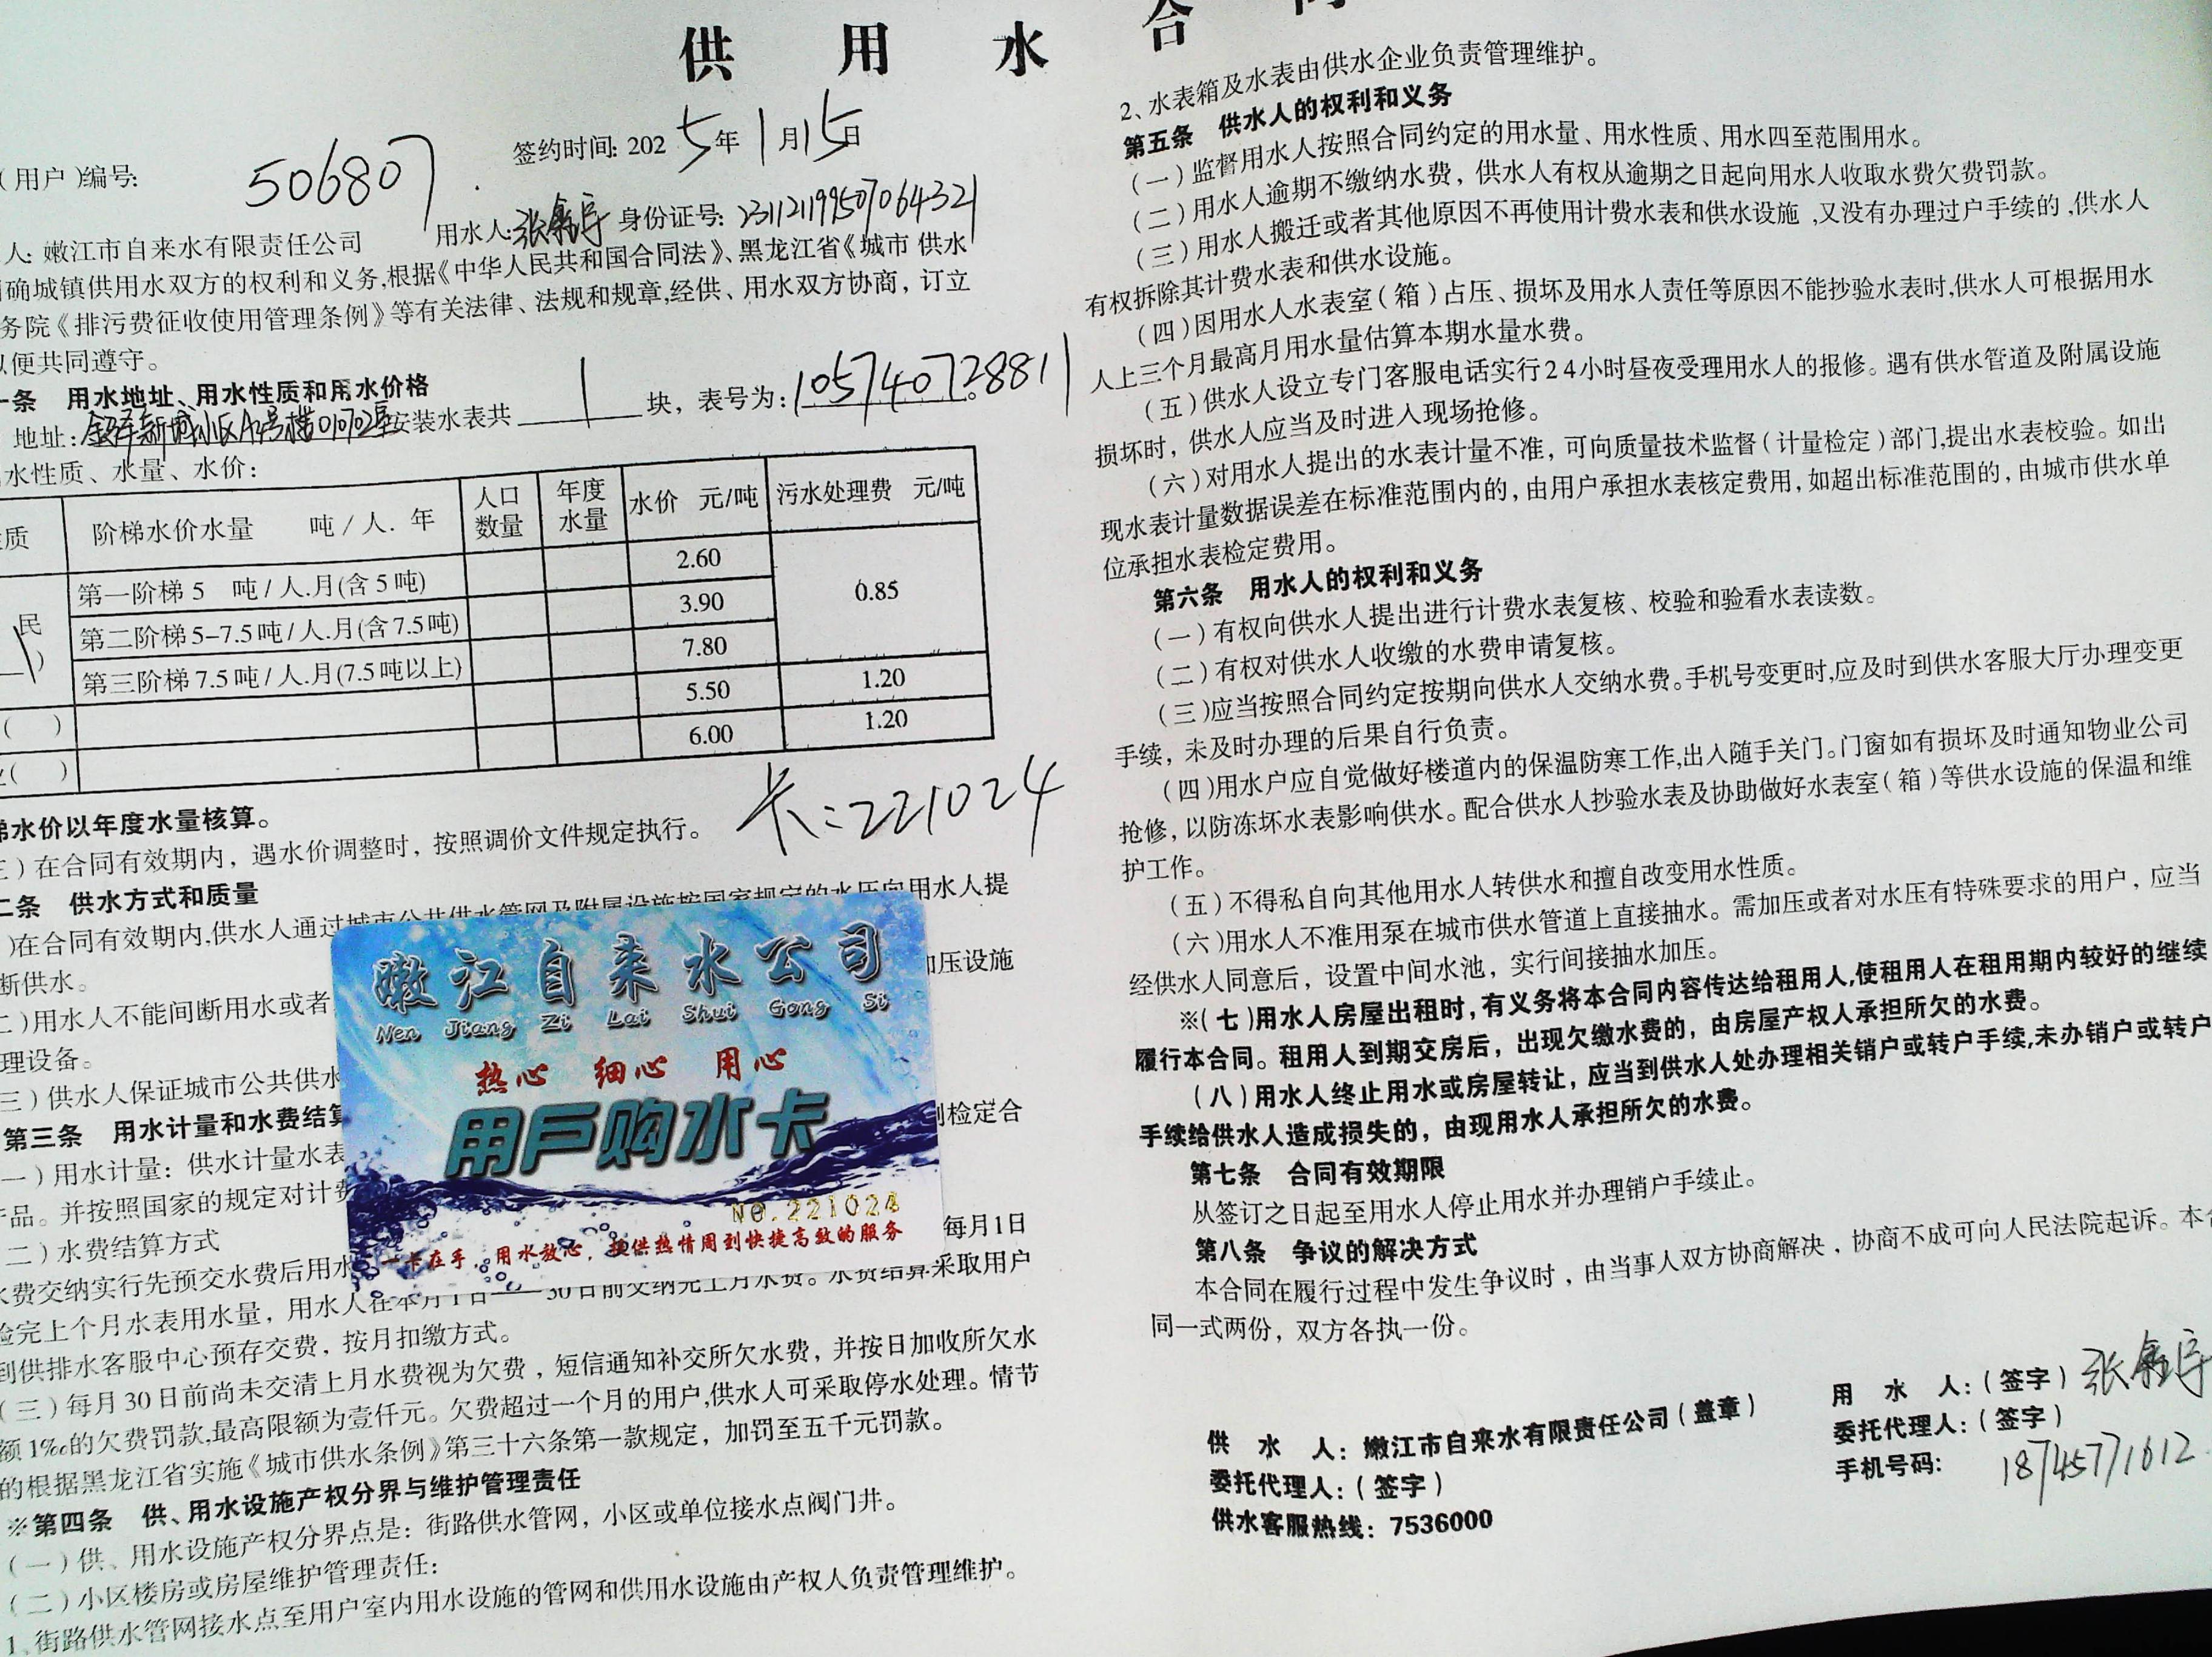 供 用 水 合 同
(用户)编号: 506807
签约时间: 2025年1月15日
人: 嫩江市自来水有限责任公司
用水人: 张 宇 身份证号: 231121199507064321
确城镇供用水双方的权利和义务,根据《中华人民共和国合同法》、黑龙江省《城市 供水
务院《排污费征收使用管理条例》等有关法律、法规和规章,经供、用水双方协商，订立
以便共同遵守。
一条 用水地址、用水性质和用水价格
地址: 新城小区A 号楼010702 安装水表共 1 块，表号为: 105740728811。
水性质、水量、水价:
质 阶梯水价水量 吨/人.年 人口数量 年度水量 水价 元/吨 污水处理费 元/吨
民 第一阶梯 5 吨/人.月(含5吨) 2.60 0.85
第二阶梯5-7.5吨/人.月(含7.5吨) 3.90
第三阶梯7.5吨/人.月(7.5吨以上) 7.80
( ) 5.50 1.20
( ) 6.00 1.20
卡:221024
梯水价以年度水量核算。
三)在合同有效期内，遇水价调整时，按照调价文件规定执行。
二条 供水方式和质量
)在合同有效期内,供水人通过城市公共供水管网及附属设施按国家规定的水压向用水人提
断供水。
加压设施
二)用水人不能间断用水或者
理设备。
三)供水人保证城市公共供水
第三条 用水计量和水费结算
一)用水计量：供水计量水表
检定合
产品。并按照国家的规定对计费
二)水费结算方式
水费交纳实行先预交水费后用水
每月1日
验完上个月水表用水量，用水人在本月1日——30日前交纳完上月水费。水费结算采取用户
到供排水客服中心预存交费，按月扣缴方式。
(三)每月30日前尚未交清上月水费视为欠费，短信通知补交所欠水费，并按日加收所欠水
额1‰的欠费罚款,最高限额为壹仟元。欠费超过一个月的用户,供水人可采取停水处理。情节
的根据黑龙江省实施《城市供水条例》第三十六条第一款规定，加罚至五千元罚款。
※第四条 供、用水设施产权分界与维护管理责任
(一)供、用水设施产权分界点是：街路供水管网，小区或单位接水点阀门井。
(二)小区楼房或房屋维护管理责任:
1、街路供水管网接水点至用户室内用水设施的管网和供用水设施由产权人负责管理维护。
嫩江自来水公司
Nen Jiang Zi Lai Shui Gong Si
热心 细心 用心
用户购水卡
NO.221024
一卡在手，用水放心，提供热情周到快捷高效的服务
2、水表箱及水表由供水企业负责管理维护。
第五条 供水人的权利和义务
(一)监督用水人按照合同约定的用水量、用水性质、用水四至范围用水。
(二)用水人逾期不缴纳水费，供水人有权从逾期之日起向用水人收取水费欠费罚款。
(三)用水人搬迁或者其他原因不再使用计费水表和供水设施,又没有办理过户手续的,供水人
有权拆除其计费水表和供水设施。
(四)因用水人水表室(箱)占压、损坏及用水人责任等原因不能抄验水表时,供水人可根据用水
人上三个月最高月用水量估算本期水量水费。
(五)供水人设立专门客服电话实行24小时昼夜受理用水人的报修。遇有供水管道及附属设施
损坏时，供水人应当及时进入现场抢修。
(六)对用水人提出的水表计量不准，可向质量技术监督(计量检定)部门,提出水表校验。如出
现水表计量数据误差在标准范围内的，由用户承担水表核定费用，如超出标准范围的，由城市供水单
位承担水表检定费用。
第六条 用水人的权利和义务
(一)有权向供水人提出进行计费水表复核、校验和验看水表读数。
(二)有权对供水人收缴的水费申请复核。
(三)应当按照合同约定按期向供水人交纳水费。手机号变更时,应及时到供水客服大厅办理变更
手续，未及时办理的后果自行负责。
(四)用水户应自觉做好楼道内的保温防寒工作,出入随手关门。门窗如有损坏及时通知物业公司
抢修，以防冻坏水表影响供水。配合供水人抄验水表及协助做好水表室(箱)等供水设施的保温和维
护工作。
(五)不得私自向其他用水人转供水和擅自改变用水性质。
(六)用水人不准用泵在城市供水管道上直接抽水。需加压或者对水压有特殊要求的用户，应当
经供水人同意后，设置中间水池，实行间接抽水加压。
※(七)用水人房屋出租时，有义务将本合同内容传达给租用人,使租用人在租用期内较好的继续
履行本合同。租用人到期交房后，出现欠缴水费的，由房屋产权人承担所欠的水费。
(八)用水人终止用水或房屋转让，应当到供水人处办理相关销户或转户手续,未办销户或转户
手续给供水人造成损失的，由现用水人承担所欠的水费。
第七条 合同有效期限
从签订之日起至用水人停止用水并办理销户手续止。
第八条 争议的解决方式
本合同在履行过程中发生争议时，由当事人双方协商解决，协商不成可向人民法院起诉。本合
同一式两份，双方各执一份。
供 水 人：嫩江市自来水有限责任公司(盖章)
委托代理人：(签字)
供水客服热线：7536000
用 水 人：(签字) 张 宇
委托代理人：(签字)
手机号码: 18745771612